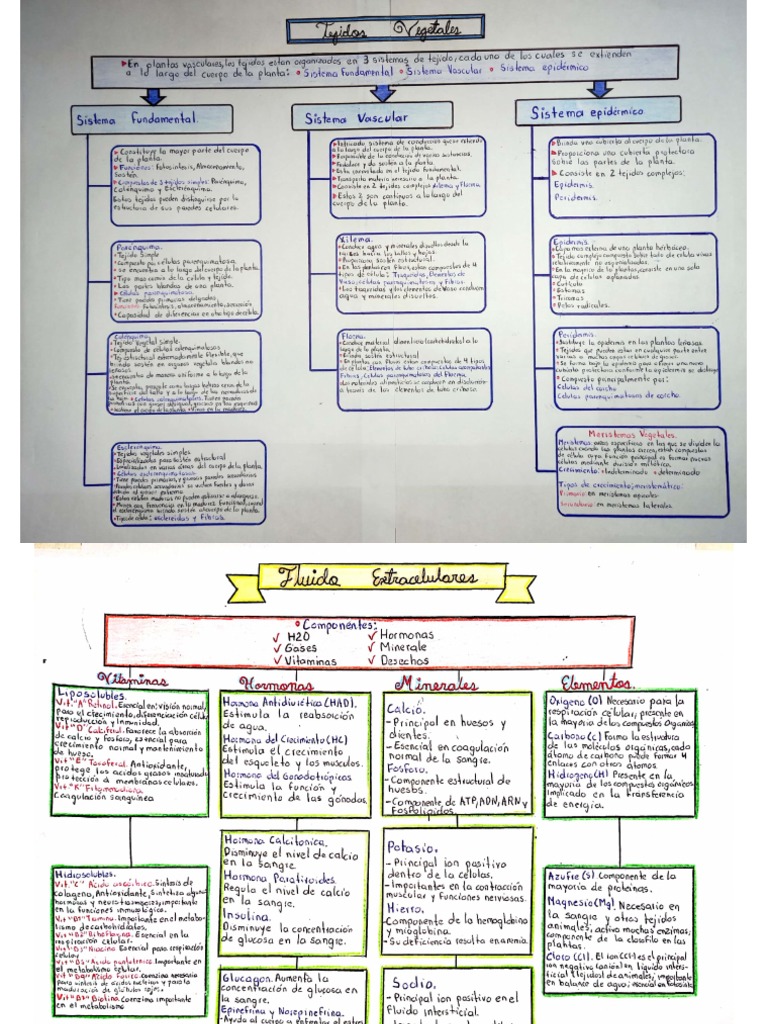 Tejidos Vegetales
▶En plantas vasculares, los tejidos estan organizados en 3 sistemas de tejido, cada uno de los cuales se extienden
a lo largo del cuerpo de la planta: • Sistema fundamental • Sistema Vascular • Sistema epidérmico
Sistema Fundamental.
▶ Constituye la mayor parte del cuerpo
de la planta.
▶ Funciones: Fotosíntesis, Almacenamiento,
Sostén.
▶ Compuestos de 3 tejidos simples: Parénquima,
Colénquima y Esclerénquima.
Estos tejidos pueden distinguirse por la
estructura de sus paredes celulares.
Parénquima.
• Tejido Simple
• Compuesto por células parenquimatosas
• se encuentra a lo largo del cuerpo de la planta.
• Tipo mas comun de la celula y tejido.
• Las partes blandas de una planta.
• Células parenquimatosas.
• Tiene paredes primarias delgadas.
• Capacidad de diferenciar en otro tejido
Colénquima.
• Tejido vegetal simple.
• Compuesto de células colenquimatosas
• Tej. estructural extremadamente flexible, que
brinda sostén en organos vegetales blandos no
Esclerénquima.
• Tejidos vegetales simples
• Especializados para sostén estructural
• Localizados en varias áreas del cuerpo de la planta.
• Células esclerenquimatosas:
• Tiene paredes primarias, y gruesas paredes secundarias
• Tipos de células: esclereidas y Fibras.
Sistema Vascular
a lo largo del cuerpo de la planta.
• Responsable de la conducción de varias sustancias.
• Fortalece y da sosten a la planta.
• Esta incrustado en el tejido fundamental.
• Transporta materia necesaria a la planta.
▶ Consiste en 2 tejidos complejos Xilema y Floema.
▶ Estos 2 son continuos a lo largo del
cuerpo de la planta.
Xilema.
• Conduce agua y minerales disueltos desde la
raices hacia los tallos y hojas.
• Proporciona sostén estructural.
• En las plantas con flores, estan compuestos de 4
tipos de celulas: Traqueidas, Elementos de
Vaso, celulas parenquimatosas y Fibras.
• Las traqueidas y los elementos de Vaso conducen
agua y minerales disueltos.
Floema.
• Conduce material alimenticio (carbohidratos) a lo
largo de la planta.
• Brinda sostén estructural
• En plantas con flores estan compuestos de 4 tipos
de celula: Elementos de tubo criboso, Celulas acompañantes
Fibras, Celulas parenquimatosas del Floema.
a traves de los elementos de tubo criboso
Sistema epidérmico
• Brinda una cubierta al cuerpo de la planta.
• Proporciona una cubierta protectora
sobre las partes de la planta.
▶ Consiste en 2 tejidos complejos:
Epidermis.
Peridermis.
Epidermis.
• Capa mas externa de una planta herbácea.
• Tejido complejo compuesto sobre todo de celulas vivas
relativamente no especializadas.
• En la mayoria de las plantas, consiste en una sola
capa de celulas aplanadas.
• Cutícula
• Estomas
• Tricomas
• Pelos radicales.
Peridermis.
• Sustituye la epidermis en las plantas leñosas.
• Compuesto principalmente por:
Células del corcho
Células parenquimatosas de corcho.
Meristemas Vegetales.
Meristemos: areas especificas en las que se dividen la
células cuando las plantas crecen, estan compuestas
de celulas cuya función principal es formar nuevas
células mediante división mitótica.
Crecimiento: • Indeterminado • determinado
Tipos de crecimiento meristemático:
Primario en meristemos apicales.
Secundario en meristemos laterales.
Fluido Extracelulares
• Componentes:
✓ H2O ✓ Hormonas
✓ Gases ✓ Minerale
✓ Vitaminas ✓ Desechos
Vitaminas
Liposolubles.
Vit. "A" Retinol. Esencial en: visión normal,
para el crecimiento, diferenciación celular,
reproducción y Inmunidad.
Vit "D" Calciferol. Favorece la absorción
de calcio y fosforo, esencial para
crecimiento normal y mantenimiento
de hueso.
Vit "E" Tocoferol. Antioxidante,
protege los acidos grasos insaturados
protección a membranas celulares.
Vit. "K" Fitomenadiona
Coagulación sanguínea
Hidrosolubles.
Vit. "C" Acido ascórbico. Sintesis de
colageno, Antioxidante, Sintetiza algunas
hormonas y neurotransmisores, importante
en la funciones inmunologico.
Vit "B1" Tiamina. Importante en el metabo-
lismo de carbohidratos.
Vit "B2" Riboflavina. Esencial en la
respiración celular.
Vit "B3" Niacina Esencial para respiración
celular
Vit "B5" Acido pantoténico Importante en
el metabolismo celular.
Vit "B9" Acido Folico Coenzima necesario
para sintesis de ácidos nucleicos y para la
maduración de glóbulos rojos.
Vit "B7" Biotina. Coenzima importante
en el metabolismo
Hormonas
Hormona Antidiurética (HAD).
Estimula la reabsoción
de agua.
Hormona del Crecimiento (HC)
Estimula el crecimiento
del esqueleto y los musculos.
Hormona del Gonodotrópicos
Estimula la función y
crecimiento de las gónodas.
Hormona Calcitonica.
Disminuye el nivel de calcio
en la sangre
Hormona Paratiroides.
Regula el nivel de calcio
en la sangre.
Insulina.
Disminuye la concentración
de glucosa en la sangre.
Glucagon. Aumenta la
concentración de glucosa en
la sangre.
Epinefrina y Norepinefrina.
Minerales
Calcio.
- Principal en huesos y
dientes.
- Esencial en coagulación
normal de la sangre.
Fosforo.
- Componente estructural de
huesos.
- Componente de ATP, ADN, ARN y
Fosfolipidos.
Potasio.
- Principal ion positivo
dentro de la células.
- Importantes en la contracción
muscular y funciones nerviosas.
Hierro.
- Componente de la hemoglobina
y mioglobina.
- Su deficiencia resulta en anemia.
Sodio.
- Principal ion positivo en el
Fluido intersticial.
Elementos.
Oxigeno (O) Necesario para la
respiración celular, presente en
la mayoria de los compuestos organicos
Carbono (c) Forma la estructura
de las moléculas orgánicas, cada
átomo de carbono puede formar 4
enlaces con otros átomos.
Hidrogeno (H) Presente en la
mayoria de los compuestos orgánicos
Implicado en la transferencia
de energia.
Azufre (S) Componente de la
mayoria de proteinas.
Magnesio (Mg). Necesario en
la sangre y otros tejidos
animales, activa muchas enzimas;
componente de la clorofila en las
plantas.
Cloro (Cl). El ion (Cl) es el principal
ion negativo (anión) en liquido inters-
ticial (fluido) de animales, importante
en balance de agua; esencial en fotosintesis